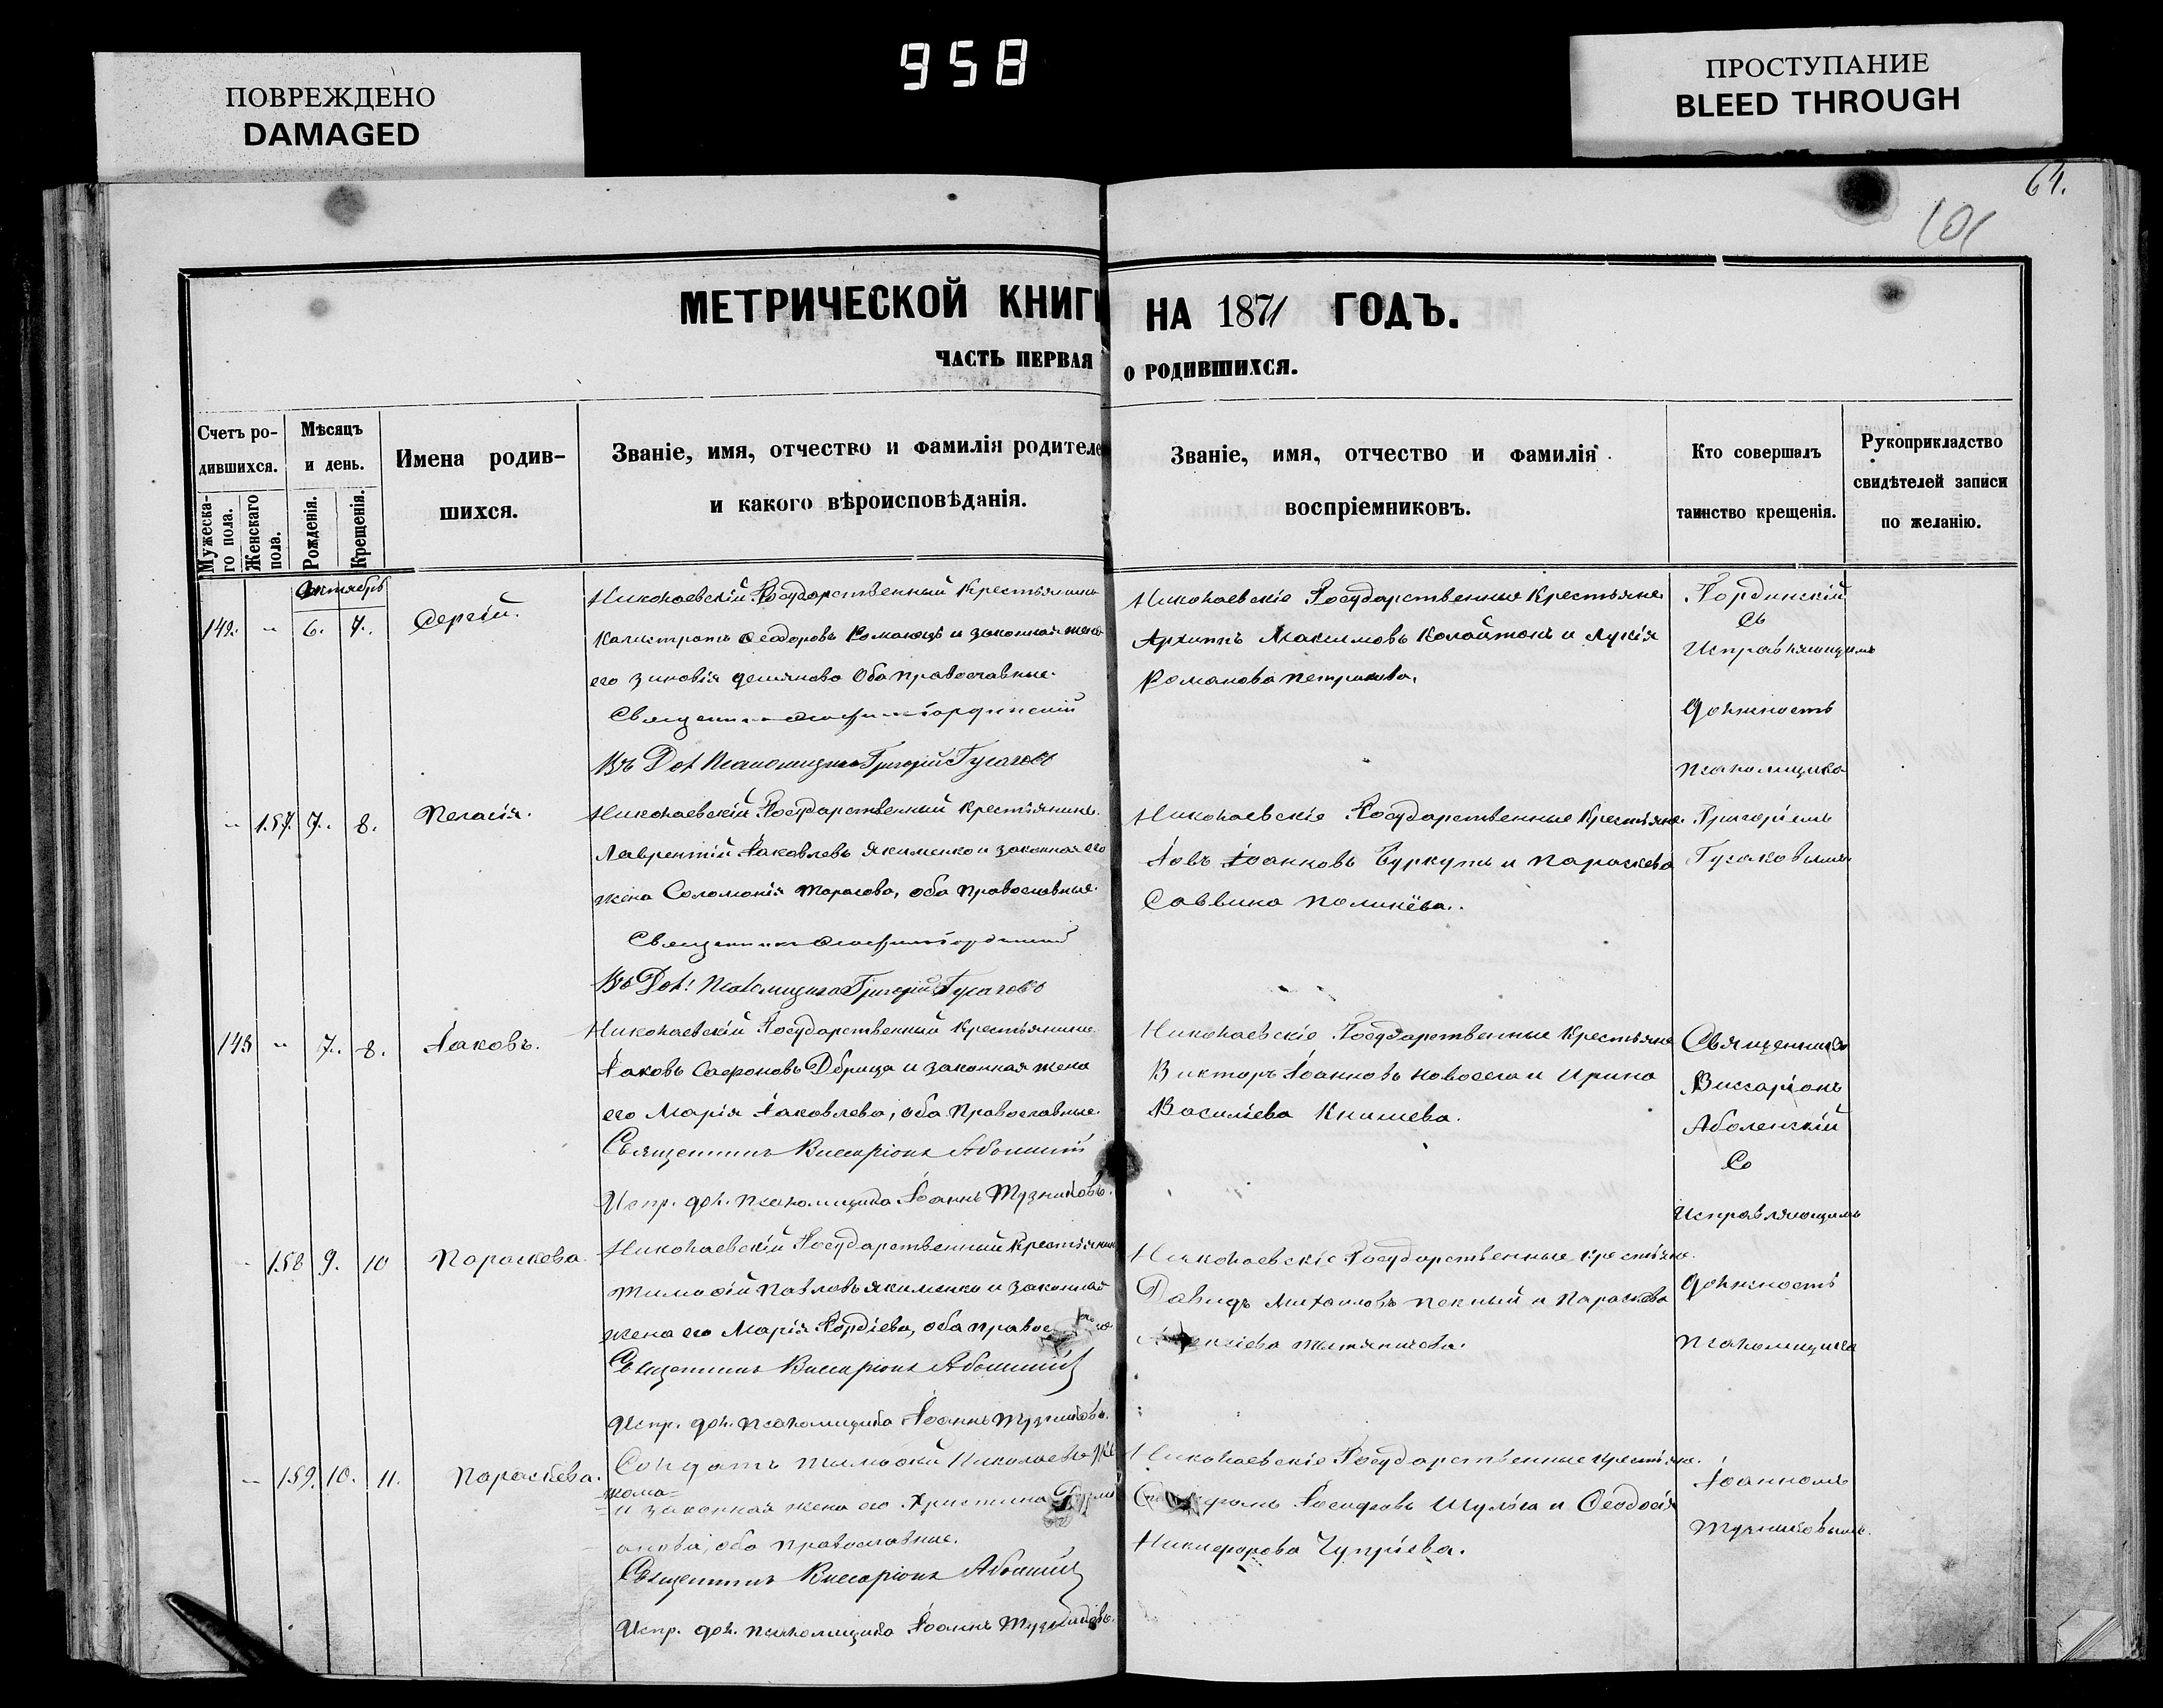 ПОВРЕЖДЕНО
DAMAGED
958
ПРОСТУПАНИЕ
BLEED THROUGH
64.
101
МЕТРИЧЕСКОЙ КНИГИ НА 1871 ГОДЪ.
ЧАСТЬ ПЕРВАЯ О РОДИВШИХСЯ.
Счетъ ро-
дившихся.
Мужеска-
го пола.
Женскаго
пола.
Мѣсяцъ
и день.
Рожденія.
Крещенія.
Имена родив-
шихся.
Званіе, имя, отчество и фамилія родителе
и какого вѣроисповѣданія.
Званіе, имя, отчество и фамилія
воспріемниковъ.
Кто совершалъ
таинство крещенія.
Рукоприкладство
свидѣтелей записи
по желанію.
Октябрь
142. " 6. 7. Сергій.
Николаевскій Государственный Крестьянинъ
Калистратъ Ѳеодоровъ и законная жена
его Зиновія Демянова оба православные.
Священникъ Гординскій
Псаломщика Григорій Гусаковъ
Николаевскіе Государственные Крестьяне
Архиппъ Максимовъ и Лукія
Романова
Гординскій
Съ
Исправляющимъ
должность
псаломщика
" 157. 7. 8. Пелагія.
Николаевскій Государственный Крестьянинъ
Лаврентій Іаковлевъ Якименко и законная его
жена Соломонія Тарасова, оба православные.
Священникъ Гординскій
Псаломщика Григорій Гусаковъ
Николаевскіе Государственные Крестьяне
Іовъ Іоанновъ Буркутъ и Параскева
Саввина
Григоріемъ
Гусаковымъ
143 " 7. 8. Іаковъ.
Николаевскій Государственный Крестьянинъ
Іаковъ Сафоновъ и законная жена
его Марія Іаковлева, оба православные.
Священникъ Виссаріонъ Аболенскій
Испр. дол. псаломщика Іоаннъ
Николаевскіе Государственные Крестьяне
Викторъ Іоанновъ Новосела и Ирина
Василіева Книшева.
Священникъ
Виссаріонъ
Аболенскій
Со
Исправляющимъ
должность
псаломщика
" 158 9. 10 Параскева.
Николаевскій Государственный Крестьянинъ
Тимоѳій Павловъ Якименко и законная
жена его Марія Гордіева, оба
Священникъ Виссаріонъ Аболенскій
Испр. дол. псаломщика Іоаннъ
Николаевскіе Государственные крестьяне.
Давидъ Михаиловъ и Параскева
" 159. 10. 11. Параскева.
Солдатъ Тимоѳій Николаевъ
и законная жена его Христина
оба православные.
Священникъ Виссаріонъ Аболенскій
Испр. дол. псаломщика Іоаннъ
Николаевскіе Государственные крестьяне.
Іосифовъ Шульга и Ѳеодосія
Никифорова Чупріева.
Іоанномъ